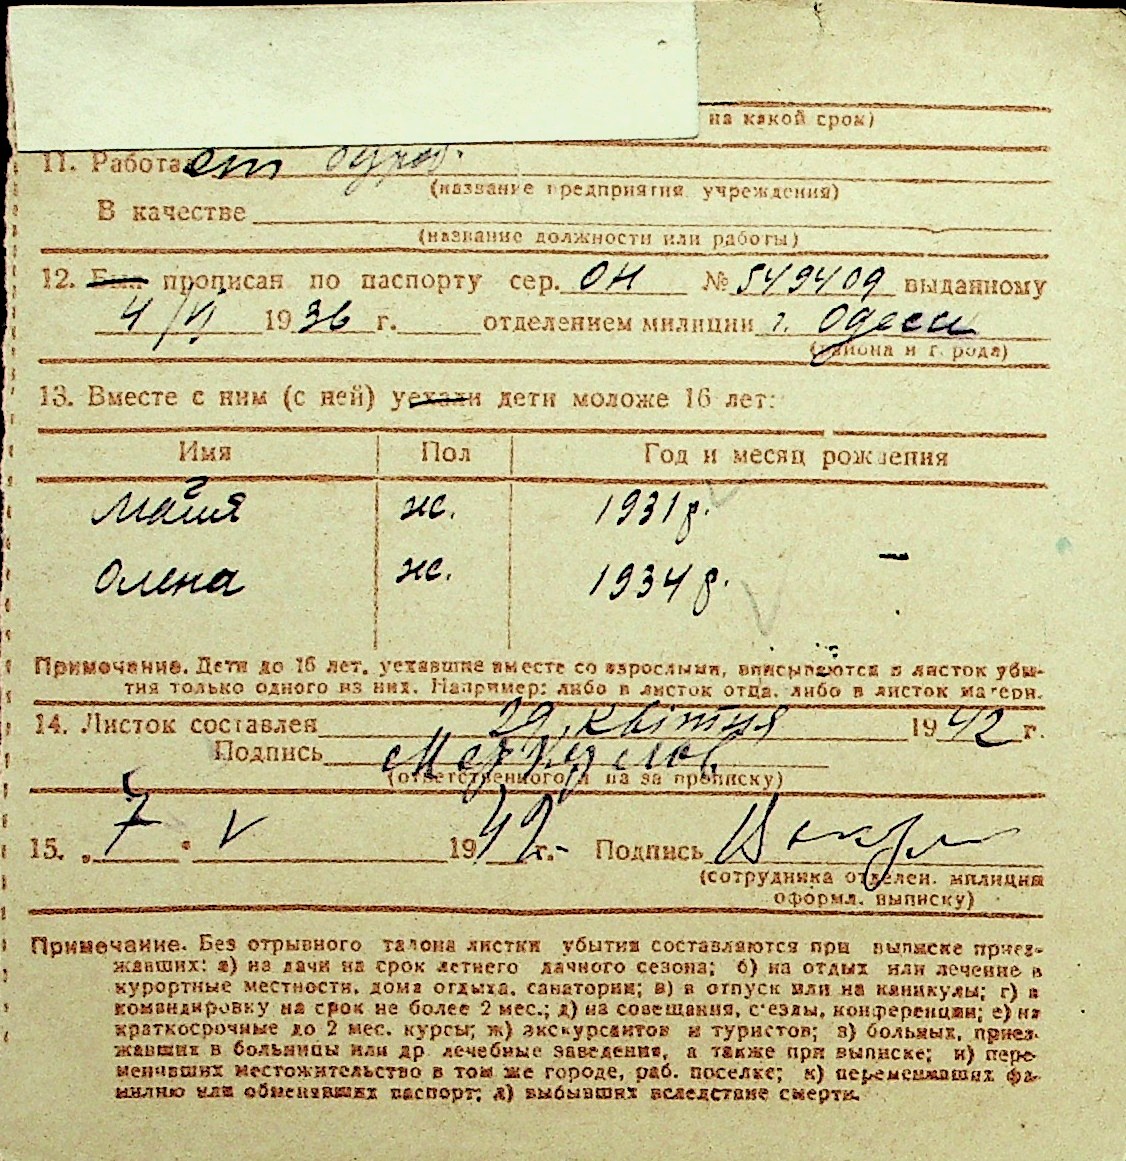 на какой срок)
11. Работа
(название предприятия, учреждения)
В качестве
(название должности или работы)
12. Был прописан по паспорту сер. ОН № 549409 выданному
4/VI 1936 г. отделением милиции г. Одеси
(района и города)
13. Вместе с ним (с ней) уехали дети моложе 16 лет:
Имя Пол Год и месяц рождения
Маия ж. 1931 р.
Олена ж. 1934 р.
Примечание. Дети до 16 лет, уехавшие вместе со взрослыми, вписываются в листок убы-
тия только одного из них. Например: либо в листок отца, либо в листок матери.
14. Листок составлен 29 квітня 1942 г.
Подпись
(ответственного л-ца за прописку)
15. „7" V 1942 г. Подпись
(сотрудника отделен. милиции
оформл. выписку)
Примечание. Без отрывного талона листки убытия составляются при выписке приез-
жавших: а) на дачи на срок летнего дачного сезона; б) на отдых или лечение в
курортные местности, дома отдыха, санатории; в) в отпуск или на каникулы; г) в
командировку на срок не более 2 мес.; д) на совещания, с'езды, конференции; е) на
краткосрочные до 2 мес. курсы; ж) экскурсантов и туристов; з) больных, приез-
жавших в больницы или др. лечебные заведения, а также при выписке; и) пере-
менивших местожительство в том же городе, раб. поселке; к) переменивших фа-
милию или обменявших паспорт; л) выбывших вследствие смерти.